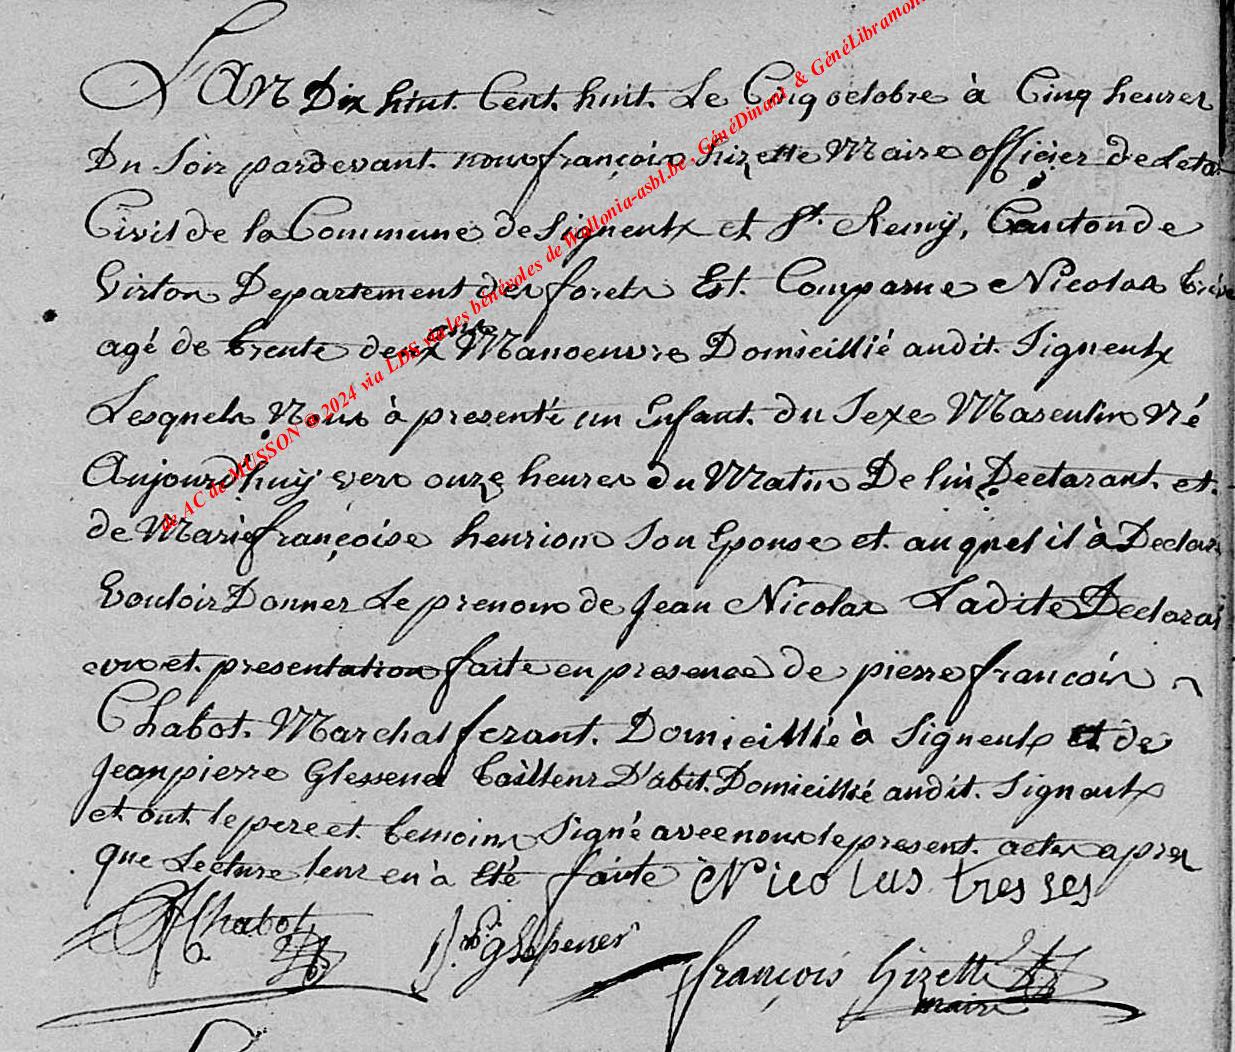 L'an Dix huit Cent huit Le Cinq octobre à Cinq heures
Du Soir pardevant nous françois hizette Maire officier de Leta
Civil de la Commune de Signeulx et St. Remÿ, Canton de
Virton Departement des forets Est Comparue Nicolas
agé de trente deux ans Manoeuvre Domicillié audit Signeulx
Lesquels Nous à presenté un Enfant du Sexe Masculin Né
Aujourd'huÿ vers onze heures du Matin De lui Declarant et
de Marie françoise henrion Son Epouse et auquel il à Declaré
Vouloir Donner Le prenom de Jean Nicolas Ladite Declarat
ion et presentation faite en presence de pierre françois
Chabot Marchal ferant Domicillié à Signeulx et de
Jean pierre Glessener tailleur D'abit Domicillié audit Signeulx
et ont le pere et temoins Signé avec nous le present acte apres
que Lecture leur en à Eté faite Nicolas tresses
Chabot
glesener
françois hizette
maire
de AC de MUSSON © 2024 via LDS via les bénévoles de Wallonia-asbl.be , GénéDinant & GénéLibramont